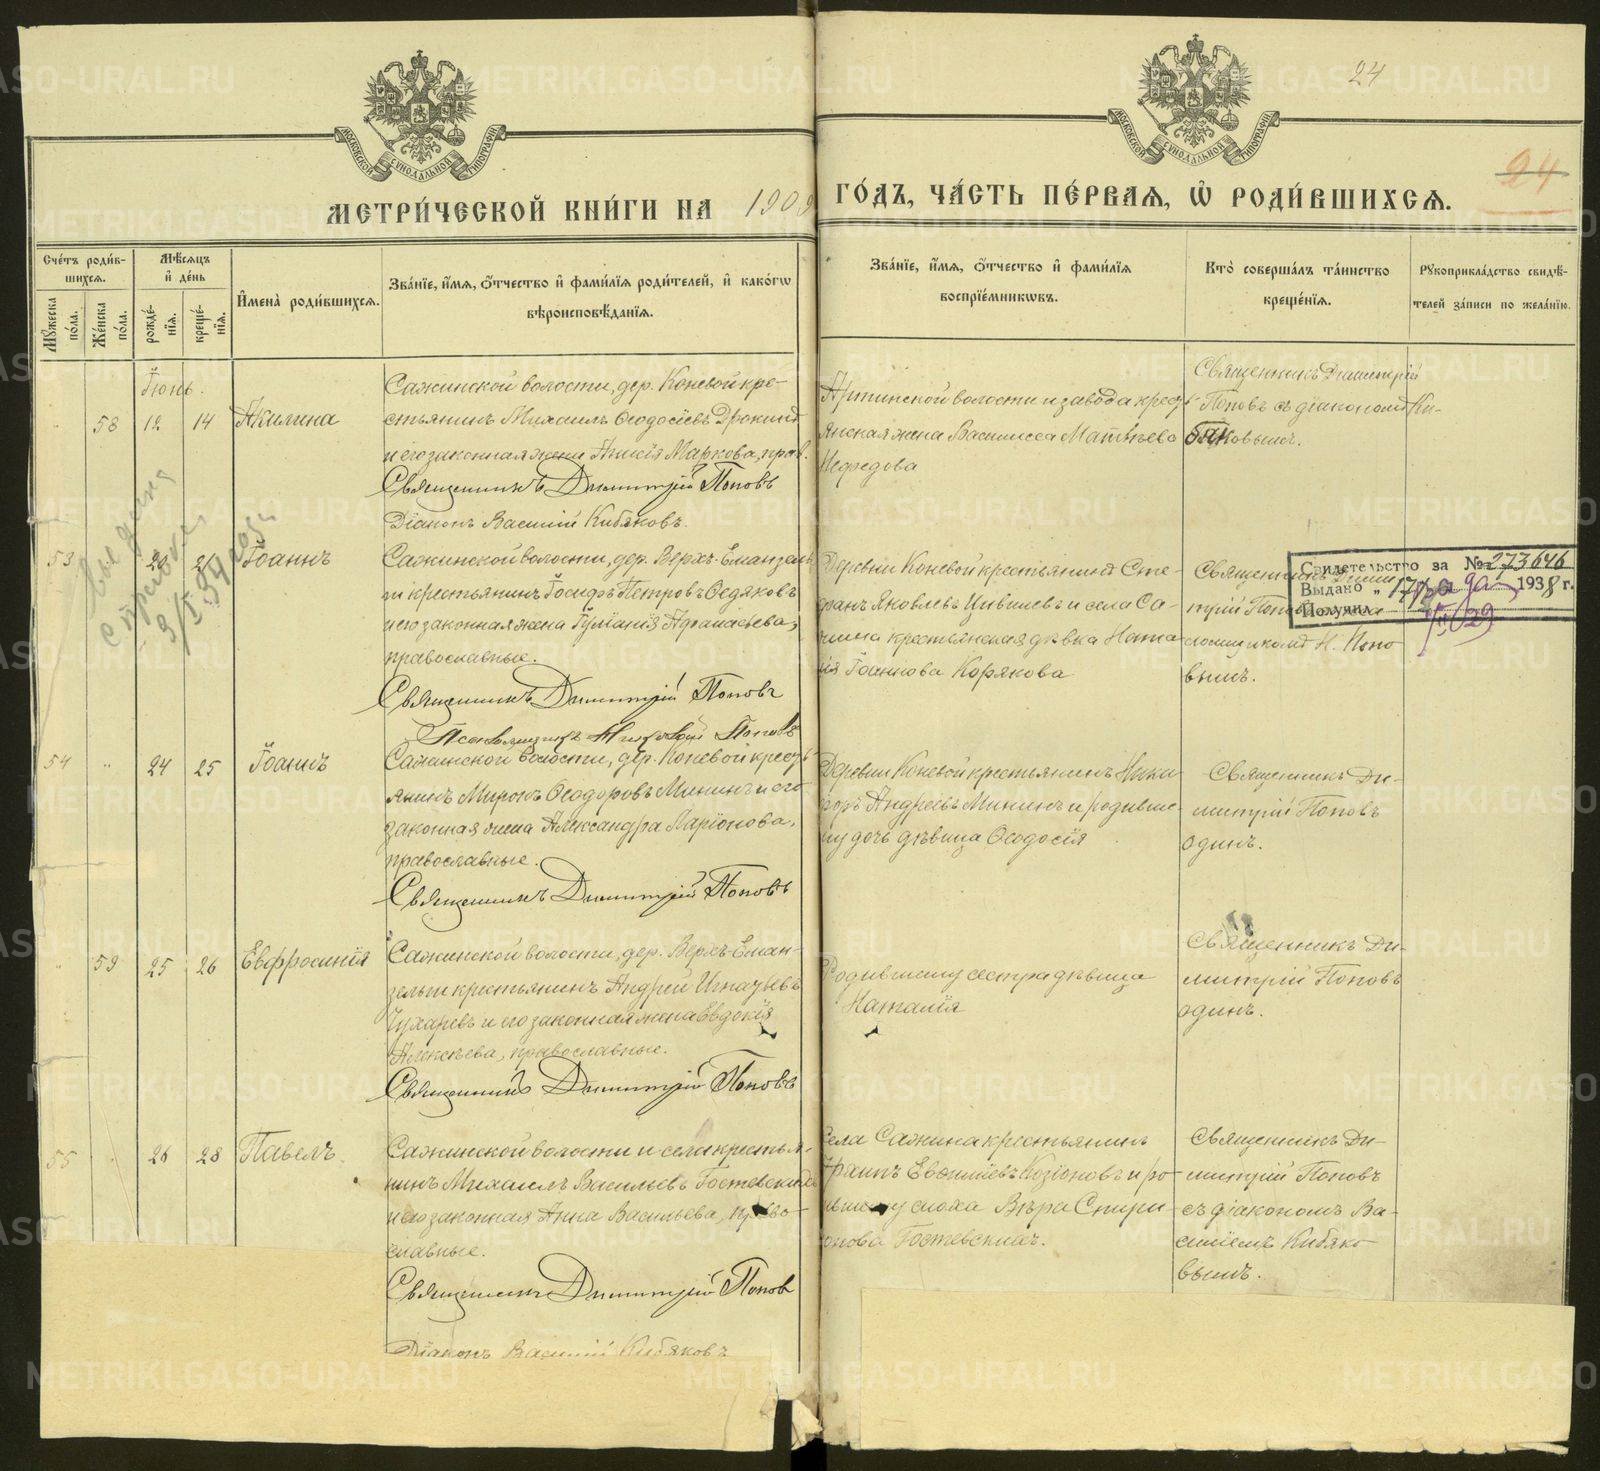 24
МОСКОВСКОЙ СУНОДАЛЬНОЙ ТИПОГРАФІИ
МОСКОВСКОЙ СУНОДАЛЬНОЙ ТИПОГРАФІИ
24
МЕТРИ́ЧЕСКОЙ КНИ́ГИ НА 1909 ГО́ДЪ, ЧА́СТЬ ПЕ́РВАѦ, Ѽ РОДИ́ВШИХСѦ.
Сче́тъ роди́в-
шихсѧ.
Мꙋ́жеска по́ла.
Же́нска по́ла.
Мѣ́сѧцъ
и҆ де́нь
рожде́-
нїѧ.
креще́-
нїѧ.
И҆мена̀ роди́вшихсѧ.
Зва́нїе, и҆́мѧ, ѻ҆́тчество и҆ фами́лїѧ роди́телей, и҆ како́гѡ
вѣроисповѣ́данїѧ.
Зва́нїе, и҆́мѧ, ѻ҆́тчество и҆ фами́лїѧ
воспрїе́мникѡвъ.
Кто̀ соверша́лъ та́инство
креще́нїѧ.
Рꙋкоприкла́дство свидѣ́-
телей за́писи по жела́нїю.
Іюнь.
58 12 14 Акилина
Сажинской волости, дер. Коневой кре-
стьянинъ Михаилъ Ѳеодосіевъ
и его законная жена Анисія Маркова, прав.
Священникъ Димитрій Поповъ
Діаконъ Василій Кибяковъ.
Артинской волости и завода крест
янская жена Василисса Матвѣева
Нефедова
Священникъ Димитрій
Поповъ съ діакономъ Ки-
бяковымъ.
53 20 21 Іоаннъ
Сажинской волости, дер. Верхъ-Еманзель
ги крестьянинъ Іосифъ Петровъ Ѳедяковъ
и его законная жена Іуліанія Афанасьева,
православные.
Священникъ Димитрій Поповъ
Псаломщикъ Николай Поповъ
Деревни Коневой крестьянинъ Сте-
фанъ Яковлевъ и села Са-
жина крестьянская дѣвка Ната
лія Іоаннова Корякова
Священникъ Дими
трій Поповъ
ломщикомъ Н. Попо
вымъ.
Свидетельство за № 273646
Выдано „ 17 1938 г.
Получил
54 " 24 25 Іоаннъ
Сажинской волости, дер. Коневой крест
янинъ Миронъ Ѳеодоровъ Мининъ и его
законная жена Александра Ларіонова,
православные.
Священникъ Димитрій Поповъ
Деревни Коневой крестьянинъ Ники
форъ Андреевъ Мининъ и родивше-
му дочь дѣвица Ѳеодосія
Священникъ Ди-
митрій Поповъ
одинъ.
59 25 26 Евфросинія
Сажинской волости, дер. Верхъ-Еман-
зельги крестьянинъ Андрей Игнатьевъ
Чухаревъ и его законная жена Евдокія
Алексѣева, православные.
Священникъ Димитрій Поповъ
Родившему сестра дѣвица
Наталія
Священникъ Ди-
митрій Поповъ
одинъ.
55 26 28 Павелъ.
Сажинской волости и села крестья-
нинъ Михаилъ Васильевъ Гостевскихъ
и его законная Анна Васильева, право-
славные.
Священникъ Димитрій Попов
Діаконъ Василій Кибяковъ
села Сажина крестьянинъ
Евфиміевъ Козіоновъ и ро
вшему сноха Вѣра Спири
онова Гостевскихъ.
Священникъ Ди-
митрій Поповъ
съ діакономъ Ва-
силіемъ Кибяко-
вымъ.
METRIKI.GASO-URAL.RU